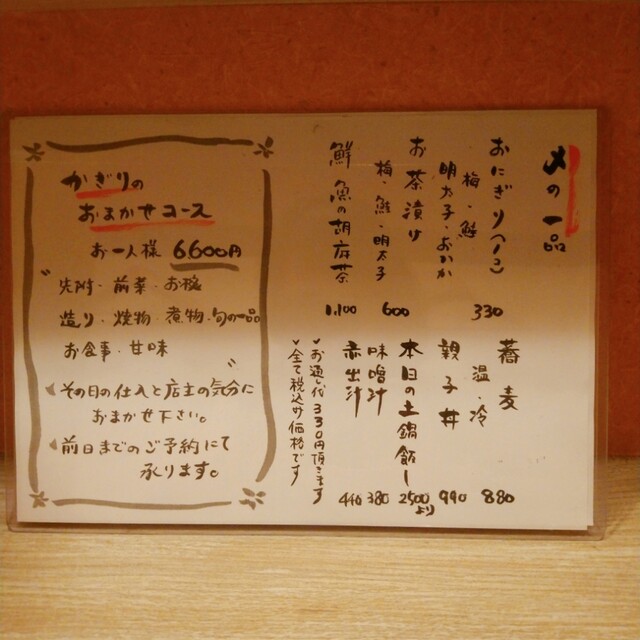 〆の一品
おにぎり(1コ)
梅・鮭
明太子・おかか
330
お茶漬け
梅・鮭・明太子
600
鮮魚の胡麻茶
1,100
蕎麦
温・冷
880
親子丼
990
本日の土鍋飯
2500より
味噌汁
380
赤出汁
440
お通し代330円頂きます
全て税込み価格です
かぎりの
おまかせコース
お一人様 6600円
先附・前菜・お椀
造り・焼物・煮物・旬の一品
お食事・甘味
その日の仕入と店主の気分に
おまかせ下さい。
前日までのご予約にて
承ります。